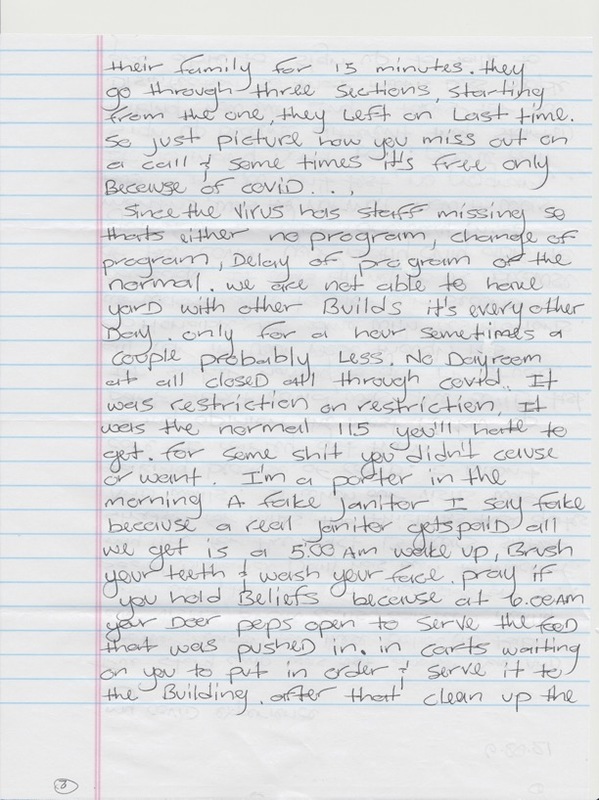 their family for 15 minutes. they
go through three sections, starting
from the one, they Left on Last time.
so just picture how you miss out on
a call & some times it's free only
Because of covid...
Since the virus has staff missing so
thats either no program, change of
program, Delay of program or the
normal. we are not able to have
yard with other Builds it's every other
Day. only for a hour sometimes a
couple probably Less. No Dayroom
at all closed all through covid. It
was restriction on restriction, It
was the normal 115 you'll hate to
get. for some shit you didn't cause
or want. I'm a porter in the
morning A fake Janitor I say fake
because a real janitor gets paid all
we get is a 5:00 Am wake up, Brush
your teeth & wash your face. pray if
you hold Beliefs because at 6:00 AM
your Door pops open to serve the food
that was pushed in. in carts waiting
on you to put in order & serve it to
the Building. after that clean up the